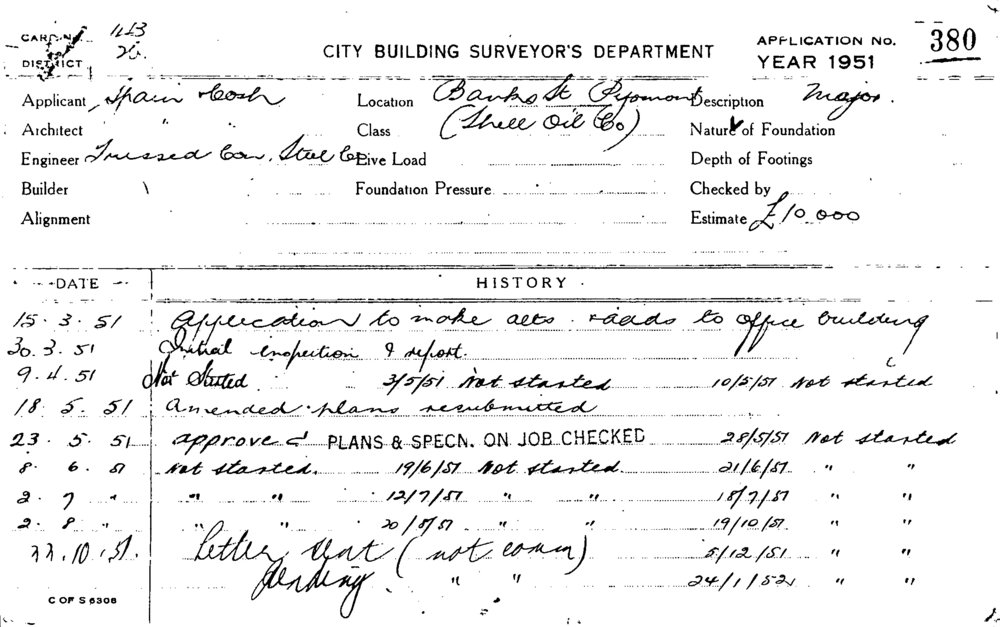 CARD No. 1113
CITY BUILDING SURVEYOR'S DEPARTMENT
APPLICATION No. 380
DISTRICT 26.
YEAR 1951
Applicant Spain & Cosh Location Banks St Pyrmont Description Major.
Architect " " Class (Shell Oil Co) Nature of Foundation
Engineer Trussed Con. Steel Co Live Load Depth of Footings
Builder Foundation Pressure Checked by
Alignment Estimate £10.000
DATE HISTORY
15.3.51 Application to make alts. & adds to office building
30.3.51 Initial inspection & report.
9.4.51 Not Started 3/5/51 Not started 10/5/51 Not started
18.5.51 Amended plans resubmitted
23.5.51 approved PLANS & SPECN. ON JOB CHECKED 28/5/51 Not started
8.6.51 Not started. 19/6/51 Not started. 21/6/51 " "
2.7 " " " 12/7/51 " " 18/7/51 " "
2.8 " " " 20/8/51 " " 19/10/51 " "
22.10.51. Letter sent (not comm) 5/12/51 " "
Pending " " 24/1/52 " "
C OF S 6306